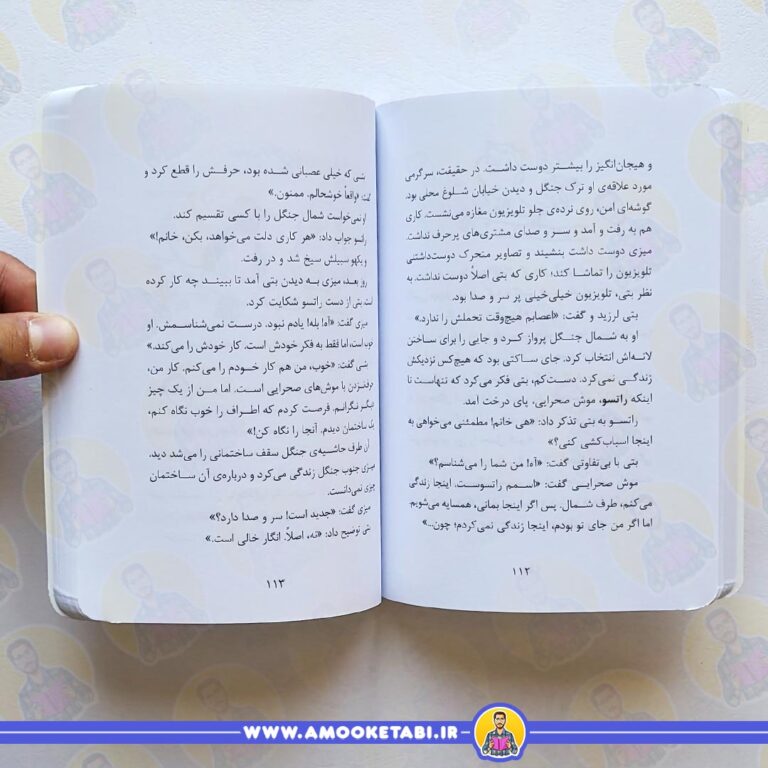 و هیجان‌انگیز را بیشتر دوست داشت. در حقیقت، سرگرمی
مورد علاقه‌ی او ترک جنگل و دیدن خیابان شلوغ محلی بود.
گوشه‌ای امن، روی نرده‌ی جلو تلویزیون مغازه می‌نشست. کاری
هم به رفت و آمد و سر و صدای مشتری‌های پرحرف نداشت.
میزی دوست داشت بنشیند و تصاویر متحرک دوست‌داشتنی
تلویزیون را تماشا کند؛ کاری که بتی اصلاً دوست نداشت. به
نظر بتی، تلویزیون خیلی‌خیلی پر سر و صدا بود.
بتی لرزید و گفت: «اعصابم هیچ‌وقت تحملش را ندارد.»
او به شمال جنگل پرواز کرد و جایی را برای ساختن
لانه‌اش انتخاب کرد. جای ساکتی بود که هیچ‌کس نزدیکش
زندگی نمی‌کرد. دست‌کم، بتی فکر می‌کرد که تنهاست تا
اینکه راتسو، موش صحرایی، پای درخت آمد.
راتسو به بتی تذکر داد: «هی خانم! مطمئنی می‌خواهی به
اینجا اسباب‌کشی کنی؟»
بتی با بی‌تفاوتی گفت: «آه! من شما را می‌شناسم؟»
موش صحرایی گفت: «اسمم راتسوست. اینجا زندگی
می‌کنم، طرف شمال. پس اگر اینجا بمانی، همسایه می‌شویم.
اما اگر من جای تو بودم، اینجا زندگی نمی‌کردم؛ چون...»
۱۱۲
بتی که خیلی عصبانی شده بود، حرفش را قطع کرد و
گفت: «واقعاً خوشحالم. ممنون.»
او نمی‌خواست شمال جنگل را با کسی تقسیم کند.
راتسو جواب داد: «هر کاری دلت می‌خواهد، بکن، خانم!»
و یکهو سبیلش سیخ شد و در رفت.
روز بعد، میزی به دیدن بتی آمد تا ببیند چه کار کرده
است. بتی از دست راتسو شکایت کرد.
میزی گفت: «آه! بله! یادم نبود. درست نمی‌شناسمش. او
خوب است، اما فقط به فکر خودش است. کار خودش را می‌کند.»
بتی گفت: «خوب، من هم کار خودم را می‌کنم. کار من،
حرف‌نزدن با موش‌های صحرایی است. اما من از یک چیز
دیگر نگرانم. فرصت کردم که اطراف را خوب نگاه کنم،
یک ساختمان دیدم. آنجا را نگاه کن!»
آن طرف حاشیه‌ی جنگل سقف ساختمانی را می‌شد دید.
میزی جنوب جنگل زندگی می‌کرد و درباره‌ی آن ساختمان
چیزی نمی‌دانست.
میزی گفت: «جدید است! سر و صدا دارد؟»
بتی توضیح داد: «نه، اصلاً. انگار خالی است.»
۱۱۳
WWW.AMOOKETABI.IR